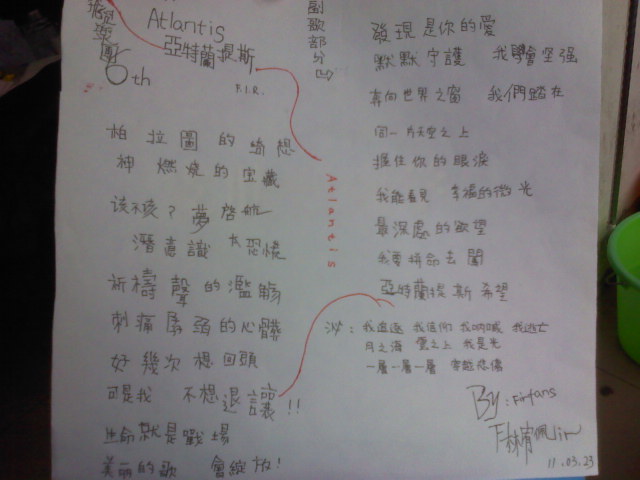 Atlantis
亞特蘭提斯
6th
F.I.R.
柏拉圖的綺想
神燃燒的宝藏
该不该？夢啓航
潛意識大恐慌
祈禱聲的濫觴
刺痛孱弱的心髒
好幾次想回頭
可是我 不想退讓!!
生命就是戰場
美丽的歌 會綻放!
Atlantis
副歌部分
發現是你的愛
默默守護 我學會坚强
奔向世界之窗 我們踏在
同一片天空之上
握住你的眼淚
我能看見 幸福的微光
最深處的欲望
我要拼命去闖
亞特蘭提斯希望
我追逐 我信仰 我吶喊 我逃亡
月之海 雲之上 我是光
一層一層一層 穿越悲傷
By:Firfans
11.03.23